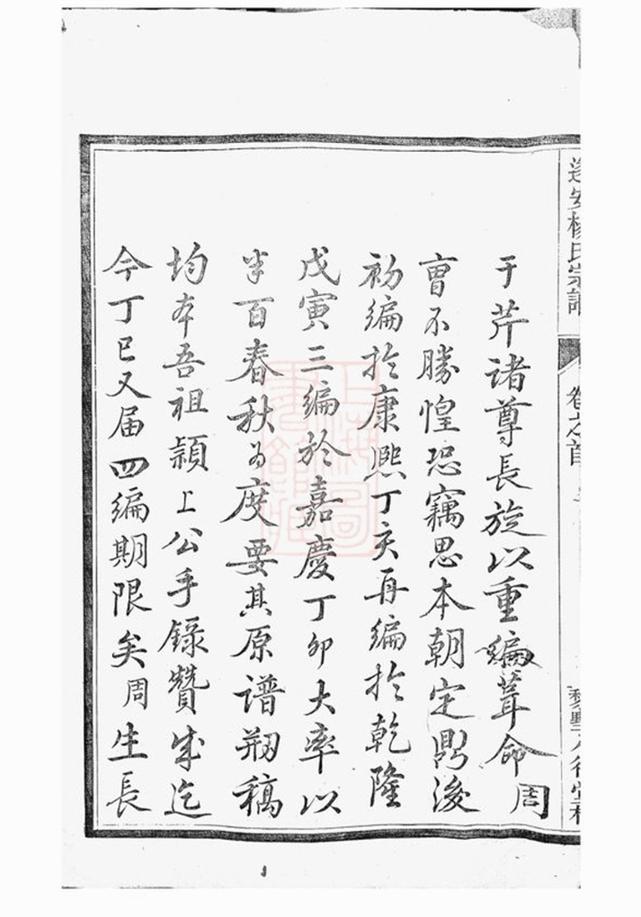 遂安楊氏宗譜 卷之首
于芹諸尊長旋以重編葺命周
曺不勝惶恐竊思本朝定鼎後
初編於康熙丁亥再編於乾隆
戊寅三編於嘉慶丁卯大率以
半百春秋為度要其原谱剏稿
均本吾祖頴上公手錄贊成迄
今丁巳又届四編期限矣周生長